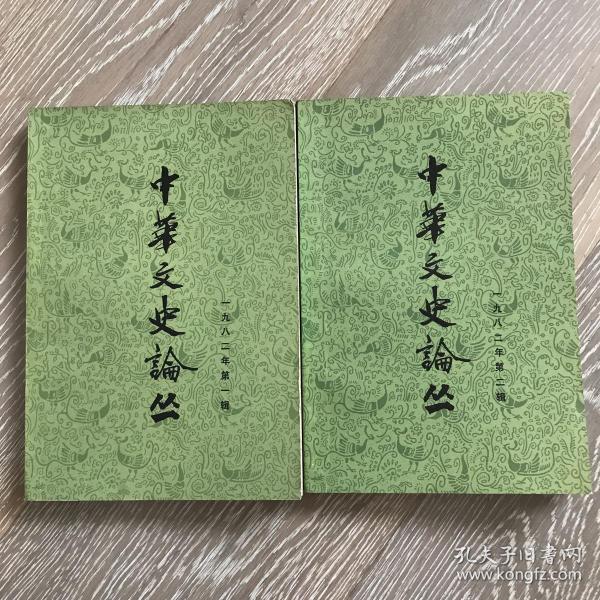 中華文史論丛
一九八二年第一辑
中華文史論丛
一九八二年第二辑
孔夫子旧书网
www.kongfz.com